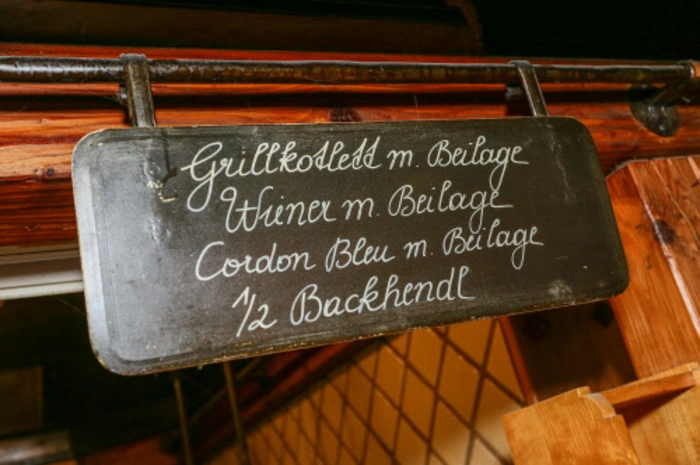 Grillkotlett m. Beilage
Wiener m. Beilage
Cordon Bleu m. Beilage
1/2 Backhendl